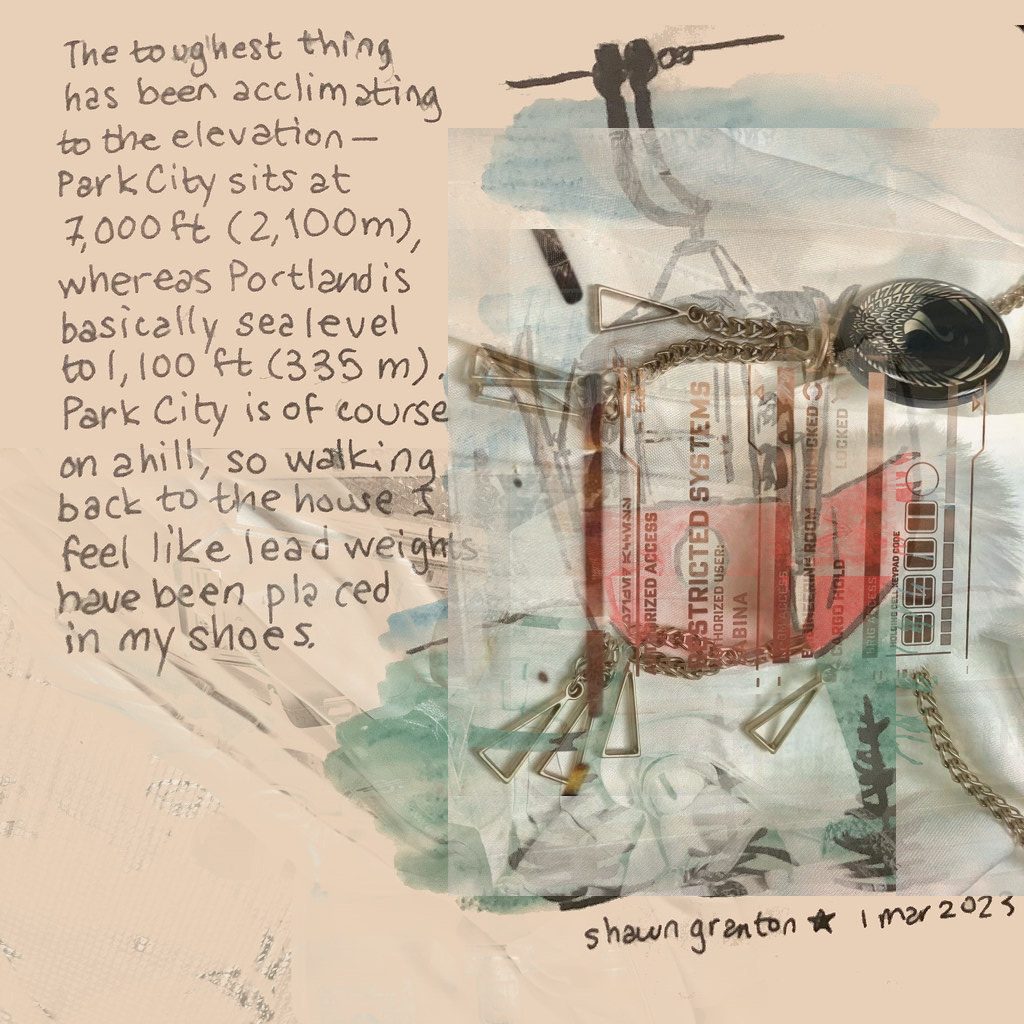 The toughest thing
has been acclimating
to the elevation—
Park City sits at
7,000 ft (2,100m),
whereas Portland is
basically sea level
to 1,100 ft (335 m).
Park City is of course
on a hill, so walking
back to the house I
feel like lead weights
have been placed
in my shoes.
RESTRICTED SYSTEMS
AUTHORIZED USER:
BINA
ORIZED ACCESS
ROOM UNLOCKED
CARGO HOLD LOCKED
KEYPAD CODE
shawn granton ★ 1 mar 2023